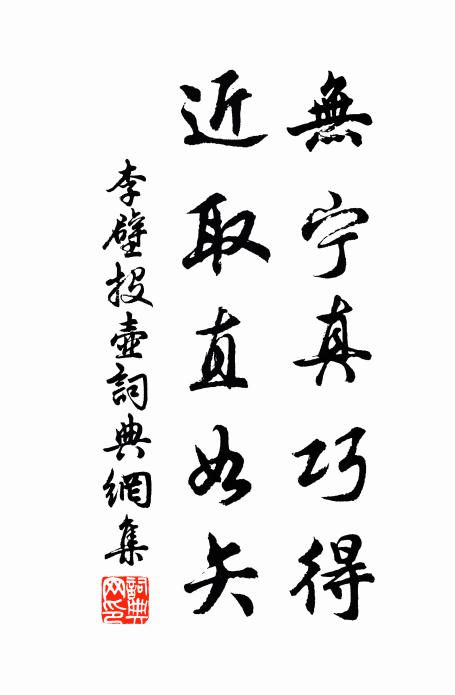 無宁真巧得
近取直如矢
李壁投壺詞典網集
詞典網印